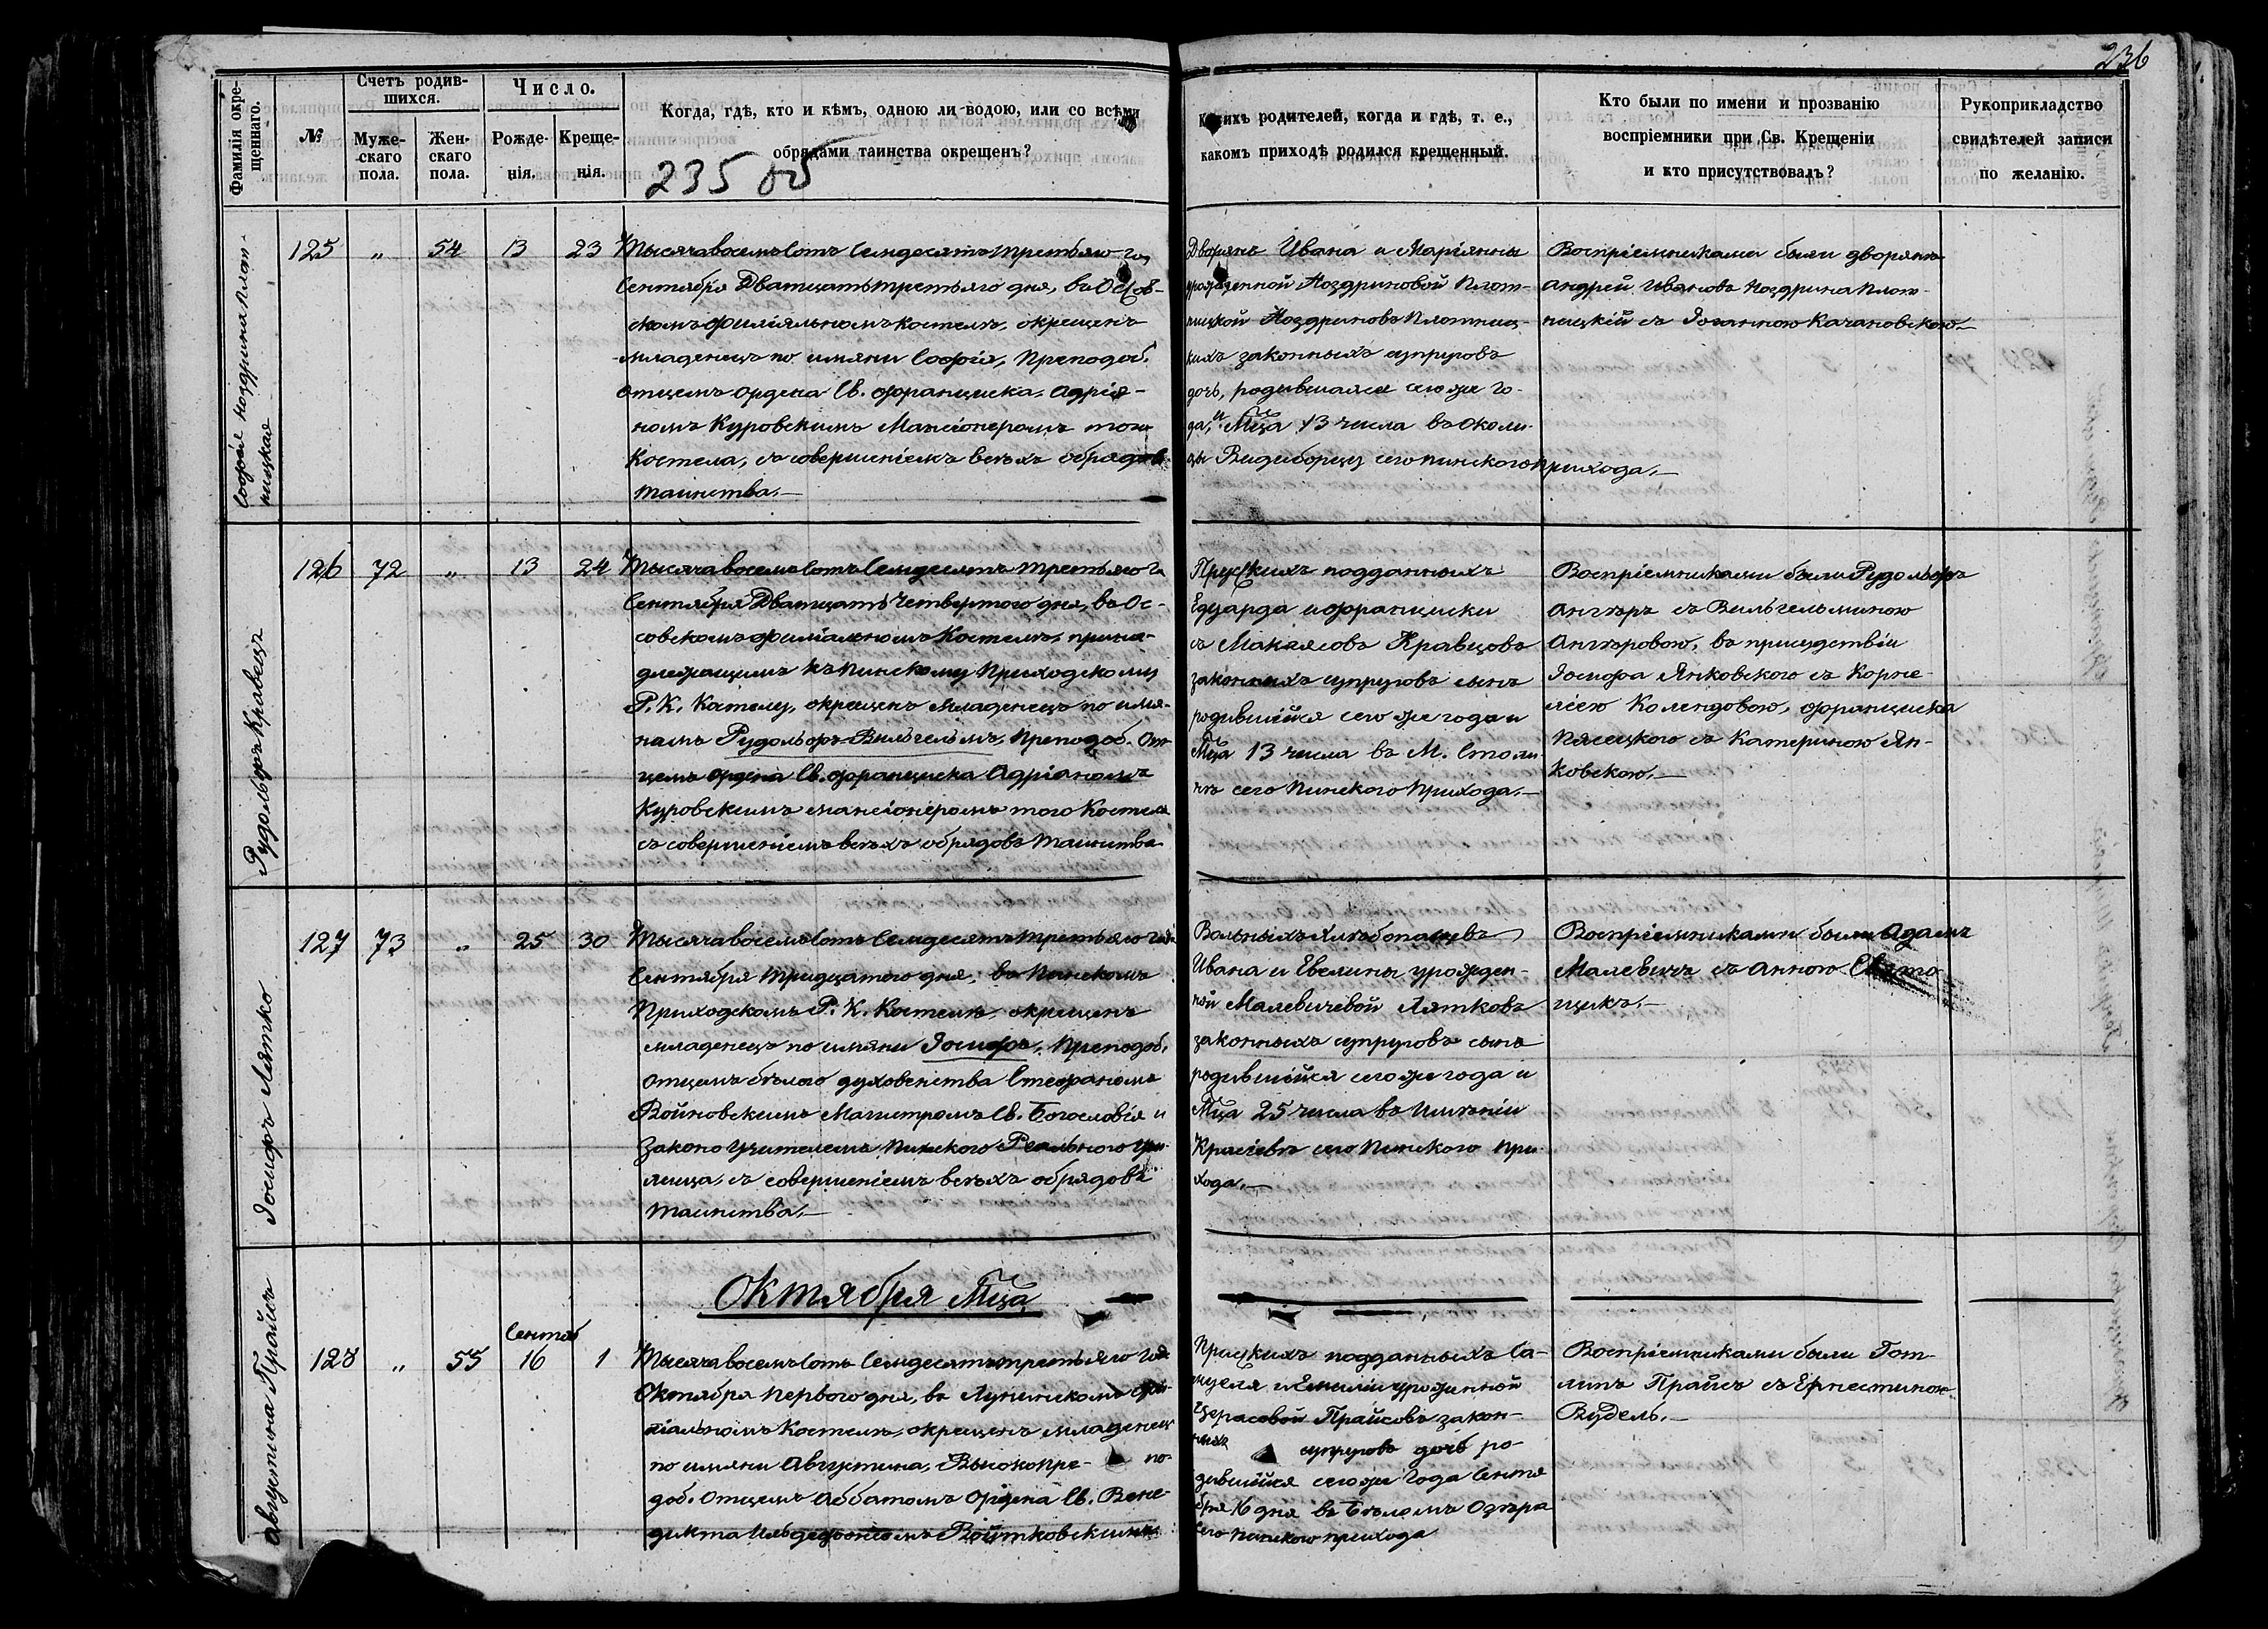 236
Фамилія окре-
щеннаго.
№
Счетъ родив-
шихся.
Муже-
скаго
пола.
Жен-
скаго
пола.
Число.
Рожде-
нія.
Креще-
нія.
Когда, гдѣ, кто и кѣмъ, одною ли водою, или со всѣми
обрядами таинства окрещенъ?
235 об
Какихъ родителей, когда и гдѣ, т. е.,
какомъ приходѣ родился крещенный.
Кто были по имени и прозванію
воспріемники при Св. Крещеніи
и кто присутствовалъ?
Рукоприкладство
свидѣтелей записи
по желанію.
Софія Ноздрина Плот-
ницкая
125 " 54 13 23
Тысяча восемь Сотъ Семдесятъ третьяго го
Сентября Дватцать третьяго дня, въ Осов-
скомъ филіяльномъ костелѣ, окрещенъ
младенецъ по имяни Софія, Преподоб.
отцемъ ордена Св. Франциска, Адрія-
номъ Куровскимъ Мансіонеромъ того
Костела, съ совершеніемъ всѣхъ обрядовъ
таинства.—
Дворянъ Ивана и Маріянны
урожденной Ноздриновой Плот-
ницкой Ноздриновъ Плотниц-
кихъ законныхъ супруговъ
дочь, родившаяся сего же го-
да, и Мца 13 числа въ околи-
цы Видиборцу сего пинского прихода.—
Воспріемниками были дворянъ
Андрей Ивановъ Ноздрина Плот-
ницкій съ Іоганною Качановскою—
Рудольфъ Кравецъ
126 72 " 13 24
Тысяча восемь Сотъ Семдесятъ третьяго го
Сентября Дватцать Четвертого дня, въ Ос-
совскомъ филіальномъ Костелѣ, прина-
длежащимъ къ Пинскому Приходскому
Р. К. Костелу, окрещенъ младенецъ по имя-
намъ Рудольфъ-Вильгельмъ, Преподоб. От-
цемъ ордена Св. Франциска Адріаномъ
Куровскимъ мансіонеромъ того Костела
съ совершеніемъ всѣхъ обрядовъ Таинства
Прусскихъ подданныхъ
Едуарда и Франциски
съ Макаясовъ Кравцовъ
законныхъ супруговъ сынъ
родившійся сего же года и
Мца 13 числа въ М. Столи-
нѣ сего Пинского Прихода.—
Воспріемниками были Рудольфъ
Ангѣръ съ Вильгельминою
Ангѣровою, въ присудствіи
Іосифа Янковского съ Корне-
ліею Колендовою, Франциска
Пясецкого съ Катериною Ян-
ковскою.—
Іосифъ Лятко
127 73 " 25 30
Тысяча восемь Сотъ Семдесятъ третьяго года
Сентября тридцатого дня, въ Пинскомъ
Приходскомъ Р. К. Костелѣ, окрещенъ
младенецъ по имяни Іосифъ, Преподоб.
отцемъ бѣлого духовенства Стефаномъ
Войновскимъ Магистромъ Св. Богословія и
Законоучителемъ Пинского Реального Учи-
лища, съ совершеніемъ всѣхъ обрядовъ
таинства.—
Вольныхъ хлѣбопашцевъ
Ивана и Евелины урожден-
ной Малевичевой Лятковъ
законныхъ супруговъ сынъ
родившійся сего же года и
Мца 25 числа въ имѣніи
сего Пинского При-
хода.—
Воспріемниками были Адамъ
Малевичъ съ Анною
щикъ.—
Октября Мца
Августина Прайсъ
128 " 55
Сентяб
16 1
Тысяча восемь Сотъ Семдесятъ третьяго года
Октября первого дня, въ Лунинскомъ фи-
ліальномъ Костелѣ, окрещенъ младенецъ
по имяни Августина, Высокопре- по-
доб. Отцемъ Аббатомъ Ордена Св. Вене-
дикта Ильдефонсомъ Войтковскимъ
Прусскихъ подданныхъ Са-
муеля и Емиліи урожденной
Церасовой Прайсовъ закон-
ныхъ супруговъ дочь ро-
дившійся сего же Года Сентя
бря 16 дня въ Бѣломъ Озѣра
сего пинского прихода
Воспріемниками были Гот-
липъ Прайсъ съ Ернестиною
Вудель.—